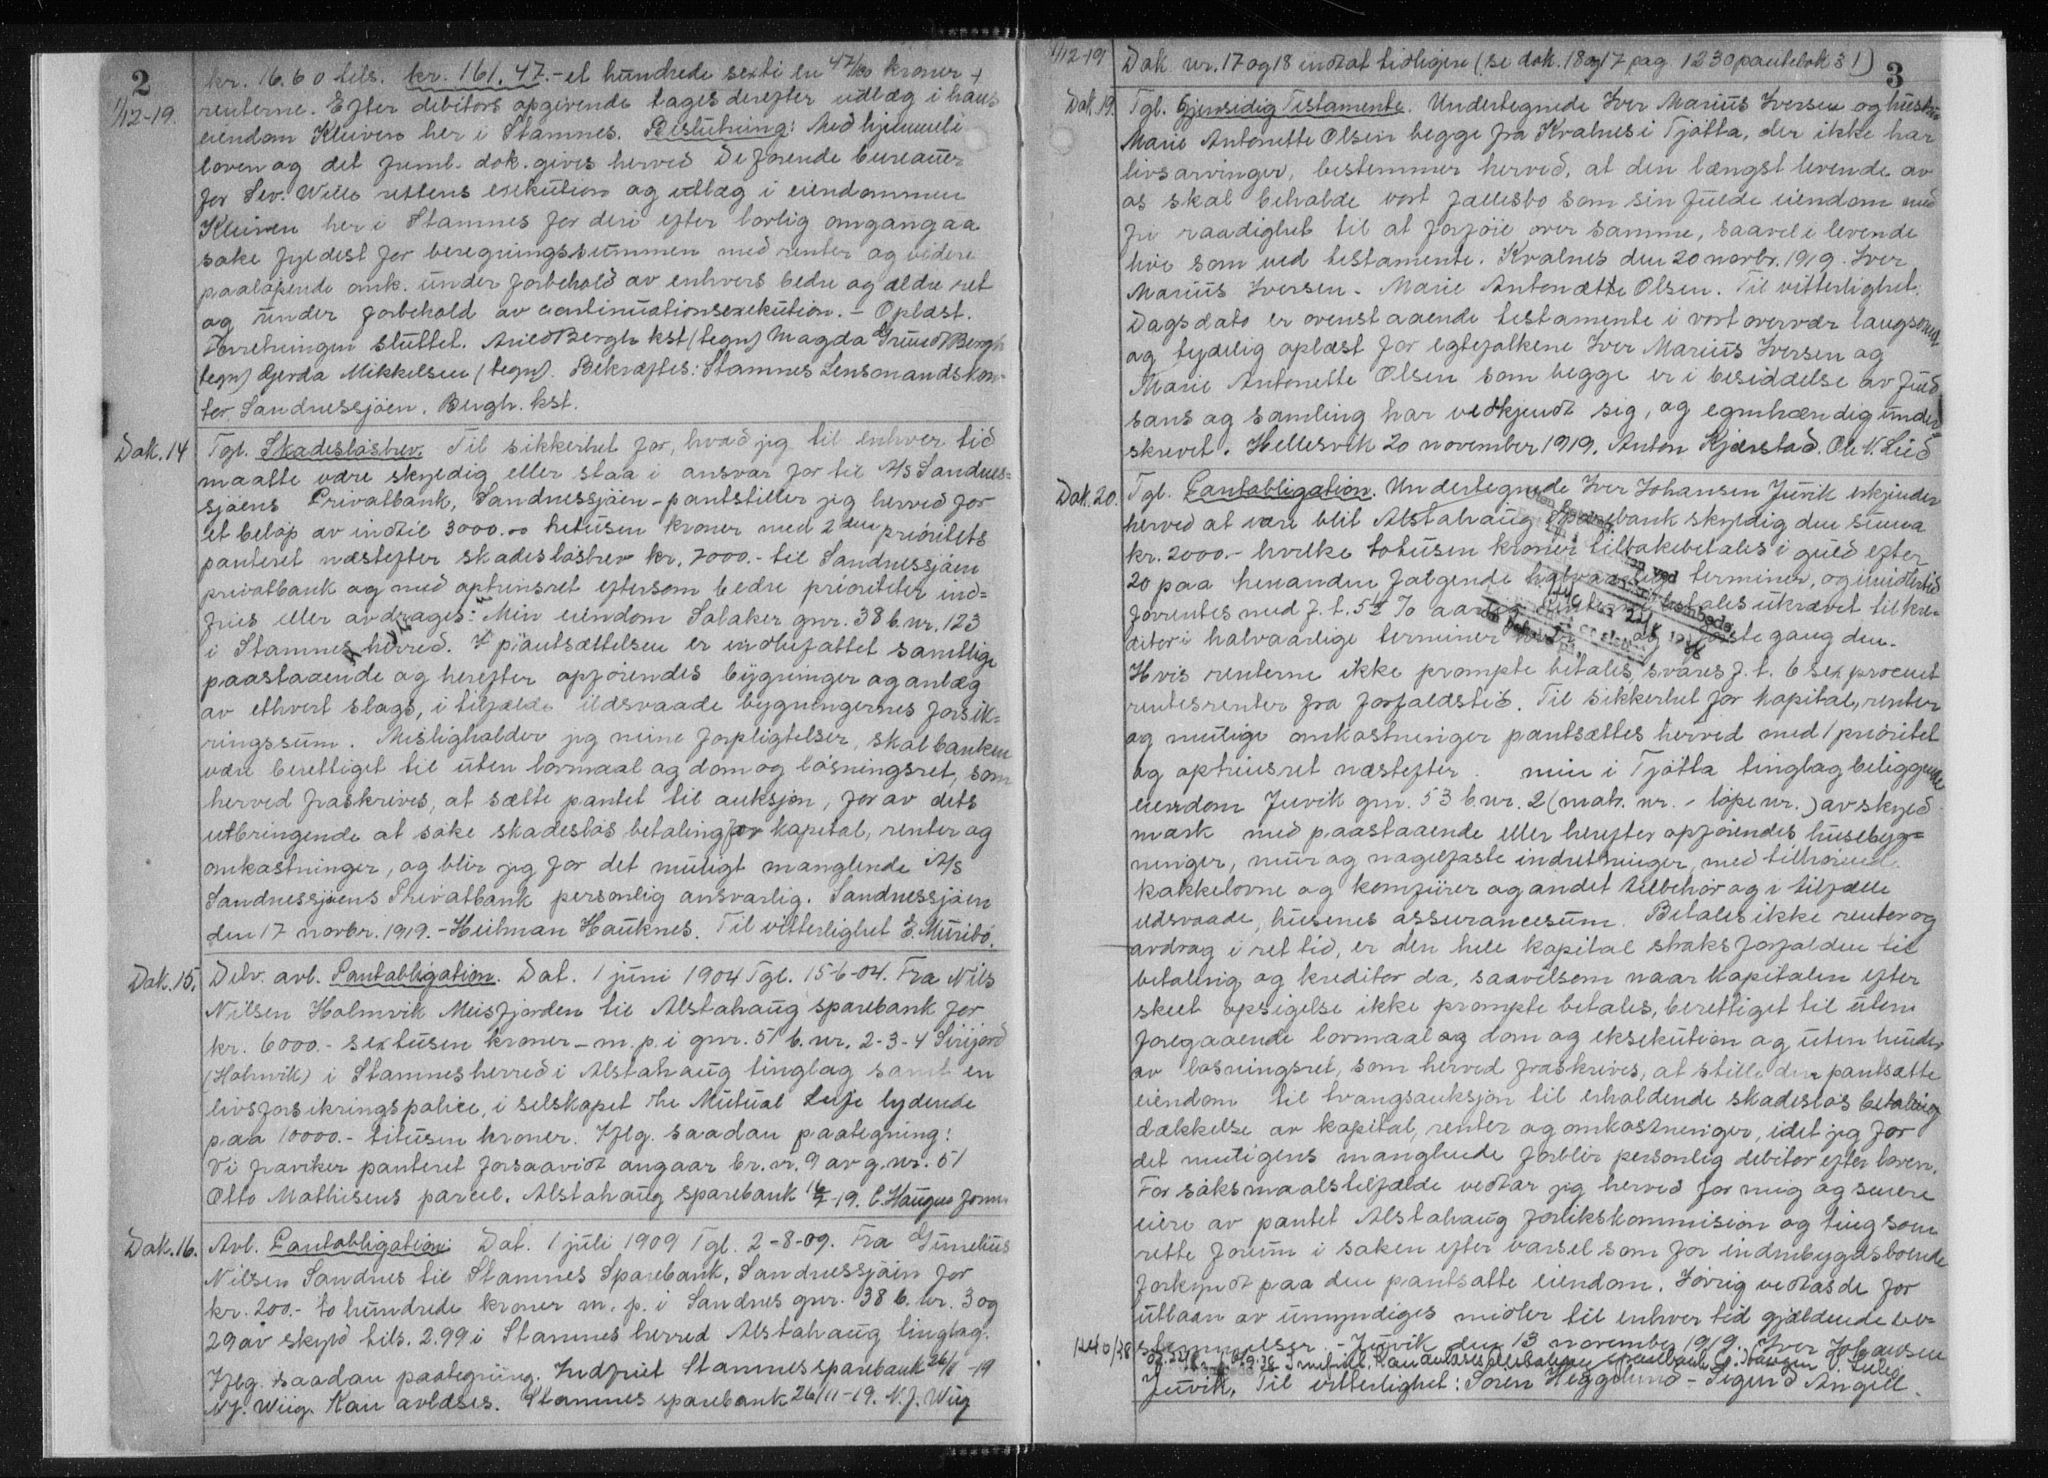 2
1/12-19.
kr. 16.60 tils. kr. 161.47.- et hundrede sexti en 47/100 kroner +
renterne. Efter debitors opgivende tages derefter utlæg i hans
eiendom Kleiven her i Stamnes. Beslutning: Med hjemmel i
loven og det freml. dok. gives herved De forende bureauer
for Sev. Wells rettens exekution og utlæg i eiendommen
Kleiven her i Stamnes for deri efter lovlig omgang aa
søke fyldest for beregningssummen med renter og videre
paaløpende omk. under forbehold av enhvers bedre og ældre ret
og under forbehold av continuationsexekution. - Oplæst.
Forretningen sluttet. Aried Bergh kst (tegn) Magda Bergh
(tegn) Gjerda Mikkelsen (tegn). Bekræftes: Stamnes Lensmandskon-
tor Sandnessjøen. Bergh. kst.
Dok. 14
Tgl. Skadesløsbrev. Til sikkerhet for, hvad jeg til enhver tid
maatte være skyldig eller staa i ansvar for til A/S Sandnes-
sjøens Privatbank, Sandnessjøen - pantstiller jeg herved for
et beløp av indtil 3000.00 tretusen kroner med 2den prioritets
panteret næstefter skadesløsbrev kr. 7000.- til Sandnessjøen
privatbank og med optrinsret eftersom bedre prioriteter ind-
fries eller avdrages: Min eiendom Solaker gnr. 38 b.nr. 123
i Stamnes herred. I pantsættelsen er indbefattet samtlige
paastaaende og herefter opførendes bygninger og anlæg
av ethvert slags, i tilfælde ildsvaade bygningernes forsik-
ringssum. Misligholder jeg mine forpligtelser, skal banken
være berettiget til uten lovmaal og dom og løsningsret, som
herved fraskrives, at sætte pantet til auksjon, for av dets
utbringende at søke skadesløs betaling for kapital, renter og
omkostninger, og blir jeg for det muligt manglende A/S
Sandnessjøens Privatbank personlig ansvarlig. Sandnessjøen
den 17 novbr. 1919. - Heitman Hauknes. Til vitterlighet E. Muribø.
Dok. 15.
Delv. avl. Pantobligation. Dat. 1 juni 1904 Tgl. 15-6-04. Fra Nils
Nilsen Holmvik Meisfjorden til Alstahaug sparebank for
kr. 6000.- sextusen kroner - m. p. i gnr. 51 b. nr. 2-3-4 Sirijord
(Holmvik) i Stamnes herred i Alstahaug tinglag samt en
livsforsikringspolice, i selskapet the Mutual Life lydende
paa 10000.- titusen kroner. Iflg. saadan paategning:
Vi fraviker panteret forsaavidt angaar br. nr. 9 av g. nr. 51
Otto Mathisens parcel. Alstahaug sparebank 16/7-19. C. Haugen form.
Dok. 16.
Avl. Pantobligation. Dat. 1 juli 1909 Tgl. 2-8-09. Fra Gunelius
Nilsen Sandnes til Stamnes Sparebank, Sandnessjøen for
kr. 200.- to hundrede kroner m. p. i Sandnes gnr. 38 b. nr. 3 og
29 av skyld tils. 2.99 i Stamnes herred Alstahaug tinglag.
Iflg. saadan paategning. Indfriet Stamnes sparebank 26/11-19
N.J. Wiig. Kan avlæses. Stamnes sparebank 26/11-19. N. J. Wiig
3
1/12-19
Dok nr. 17 og 18 indtat tidligere (se dok. 18 og 17 pag 1230 pantebok 31)
Dok. 19.
Tgl. Gjensidig Testamente. Undertegnede Iver Marius Iversen og hustru
Marie Antonette Olsen begge fra Kvalnes i Tjøtta, der ikke har
livsarvinger, bestemmer herved, at den længst levende av
os skal beholde vort fællesbo som sin fulde eiendom med
fri raadighet til at forføie over samme, saavel i levende
live som ved testamente. Kvalnes den 20 novbr. 1919. Iver
Marius Iversen - Marie Antonætte Olsen. Til vitterlighet:
Dagsdato er ovenstaaende testamente i vort overvær langsomt
og tydelig oplæst for egtefolkene Iver Marius Iversen og
Marie Antonette Olsen som begge er i besiddelse av fuld
sans og samling har vedkjendt sig, og egenhændig under-
skrevet. Hellesvik 20 november 1919. Anton Kjærstad. Ole N. Lud
Dok. 20.
Tgl. Pantobligation. Undertegnede Iver Johansen Juvik erkjender
herved at være blit Alstahaug Sparebank skyldig den summa
kr. 2000.- hvilke totusen kroner tilbakebetales i guld efter
20 paa hinanden følgende halvaarlige terminer, og imidlertid
forrentes med f. t. 5½ % aarlig renterne betales ukrævet til kre-
ditor i halvaarlige terminer hver og første gang den.
Hvis renterne ikke prompte betales, svares f. t. 6 sex procent
rentesrenter fra forfaldstid. Til sikkerhet for kapital, renter
og mulige omkostninger pantsættes herved med 1 prioritet
og optrinsret næstefter . min i Tjøtta tinglag beliggende
eiendom Juvik gnr. 53 b nr. 2 (mat. nr. - løpe nr. ) av skyld
mark med paastaaende eller herefter opførendes husebyg-
ninger, mur og nagelfaste indretninger, med tilhørende
kakkelovne og komfürer og andet tilbehør og i tilfælde
ildsvaade, husenes assurancesum. Betales ikke renter og
avdrag i ret tid, er den hele kapital straks forfalden til
betaling og kreditor da, saavelsom naar kapitalen efter
skeet opsigelse ikke prompte betales, berettiget til uten
foregaaende lovmaal og dom og eksekution og uten hinder
av løsningsret, som herved fraskrives, at stille den pantsatte
eiendom til tvangsauksjon til erholdende skadesløs betaling
dækkelse av kapital, renter og omkostninger, idet jeg for
det muligens manglende forblir personlig debitor efter loven.
For søksmaalstilfælde vedtar jeg herved for mig og senere
eiere av pantet Alstahaug forlikskommision og ting som
rette forum i saken efter varsel som for indenbygdsboende
forkyndt paa den pantsatte eiendom. Iøvrig vedtas de for
utlaan av umyndiges midler til enhver tid gjældende be-
stemmelser. - Juvik den 13 november 1919. Iver Johansen
1240/38
Juvik. Til vitterlighet: Søren Heggelund - Sigurd Angell.